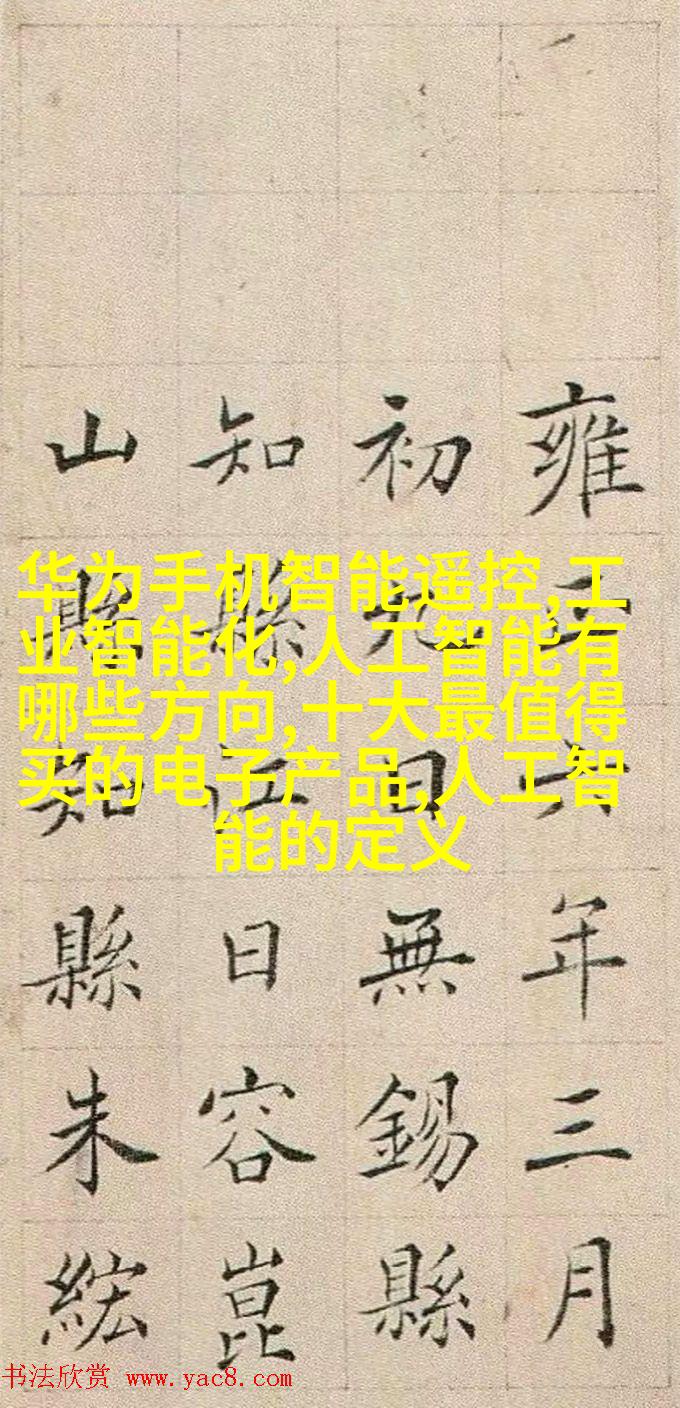 华为手机智能遥控,工
业智能化,人工智能有
哪些方向,十大最值得
买的电子产品,人工智
能的定义
雍正六年三月
初九日無錫縣
知縣江日容崑
山縣知縣朱紘
书法欣赏 www.yac8.com